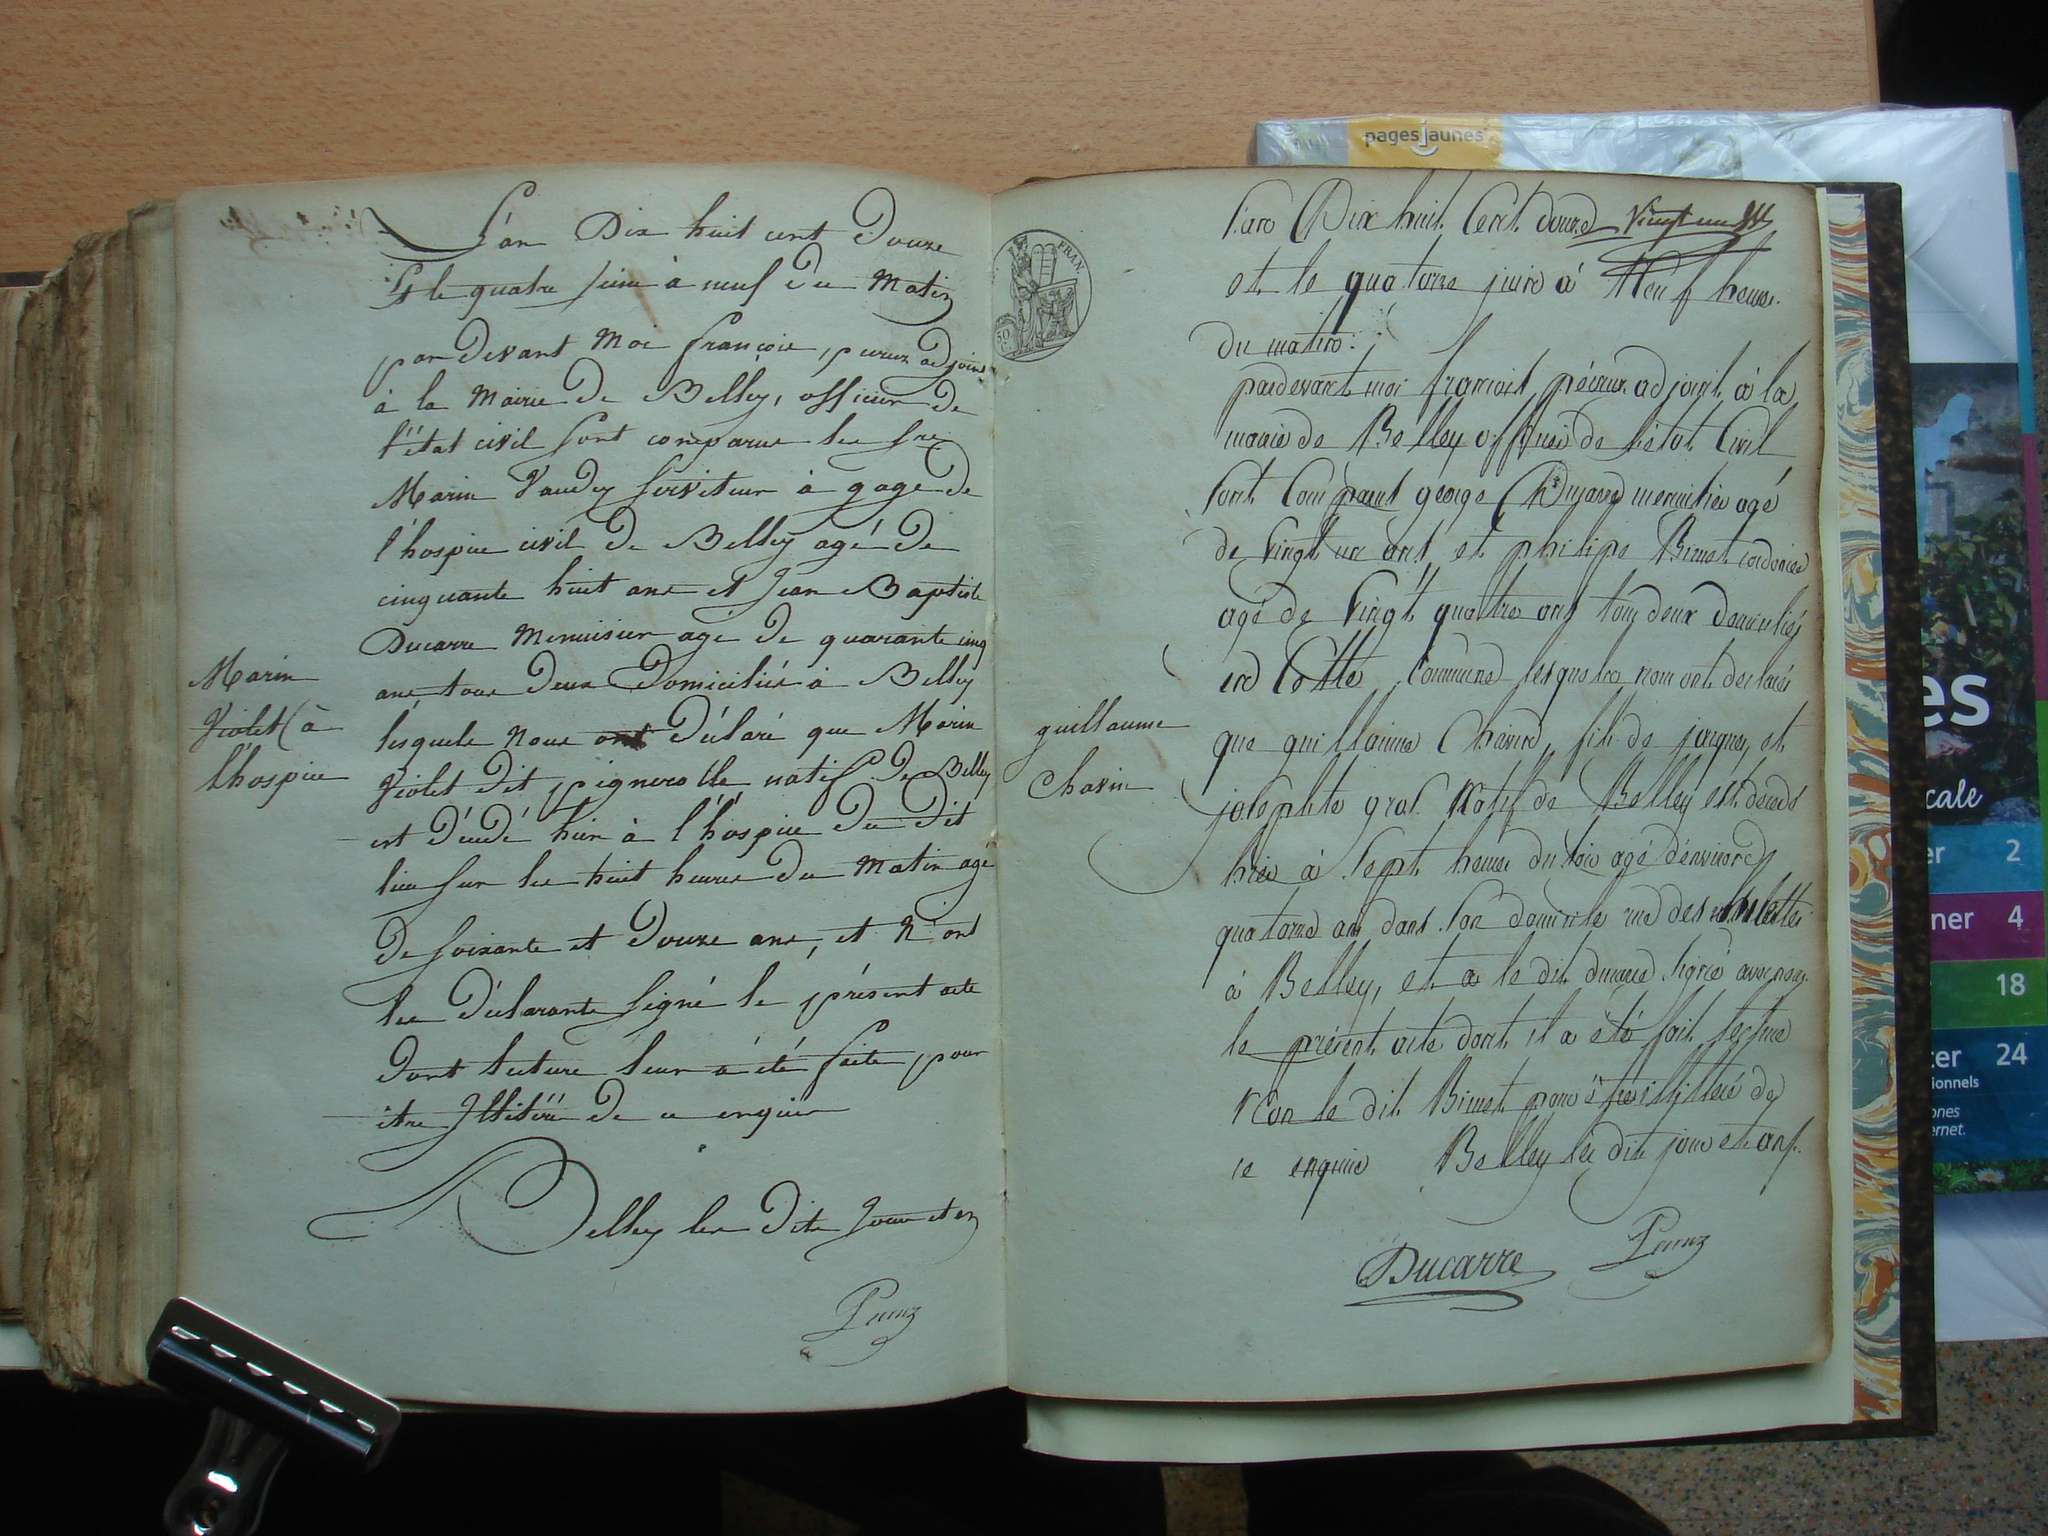 L'an Dix huit cent Douze
Et le quatre juin à neuf Du Matin
par devant Moi françois peruz adjoint
à la Mairie De Belley, officier De
l'état civil sont comparus les srs
Marin Vaudey serviteur à gage De
l'hospice civil De Belley agé De
cinquante huit ans et Jean Baptiste
Ducarre Menuisier age De quarante cinq
ans tous Deux Domiciliés à Belley
Marin
Violet (à
l'hospice
lesquels Nous ont Déclaré que Marin
Violet dit pignerolle natif De Belley
est Décédé hier à l'hospice Du Dit
lieu sur les huit heures Du Matin agé
De soixante et Douze ans, et N'ont
les Déclarants signé le présent acte
Dont lecture leur à été faite pour
être Illitéré De ce enquis
Belley les Dits Jour et an
FRAN.
50
C.
L'an Dix huit Cent douze
et le quatorze juin à Neuf heures
du matin.
pardevant moi françois péruz adjoint à la
mairie de Belley officier de l'état Civil
sont Comparus george Dujard menuisier agé
de vingt un ans et philipe Bimet cordonier
agé de vingt quatre ans tous deux domiciliés
en Cette Commune lesquels nous ont déclarés
guillaume
Chavin
que guillaume Chavin, fils de jacques et
josephte gras Natif de Belley est décedé
hier à sept heures du soir agé d'environ
quatorze ans dans son domicile rue des
à Belley, et a le dit ducarre signé avec nous
le présent acte dont il a été fait lecture
Non le dit Bimet pour être illitéré de
ce enquis Belley les dits jour et an.
Ducarre
Peruz
Peruz
pagesjaunes
es
cale
er 2
ner 4
18
ter 24
ionnels
ones
ernet.